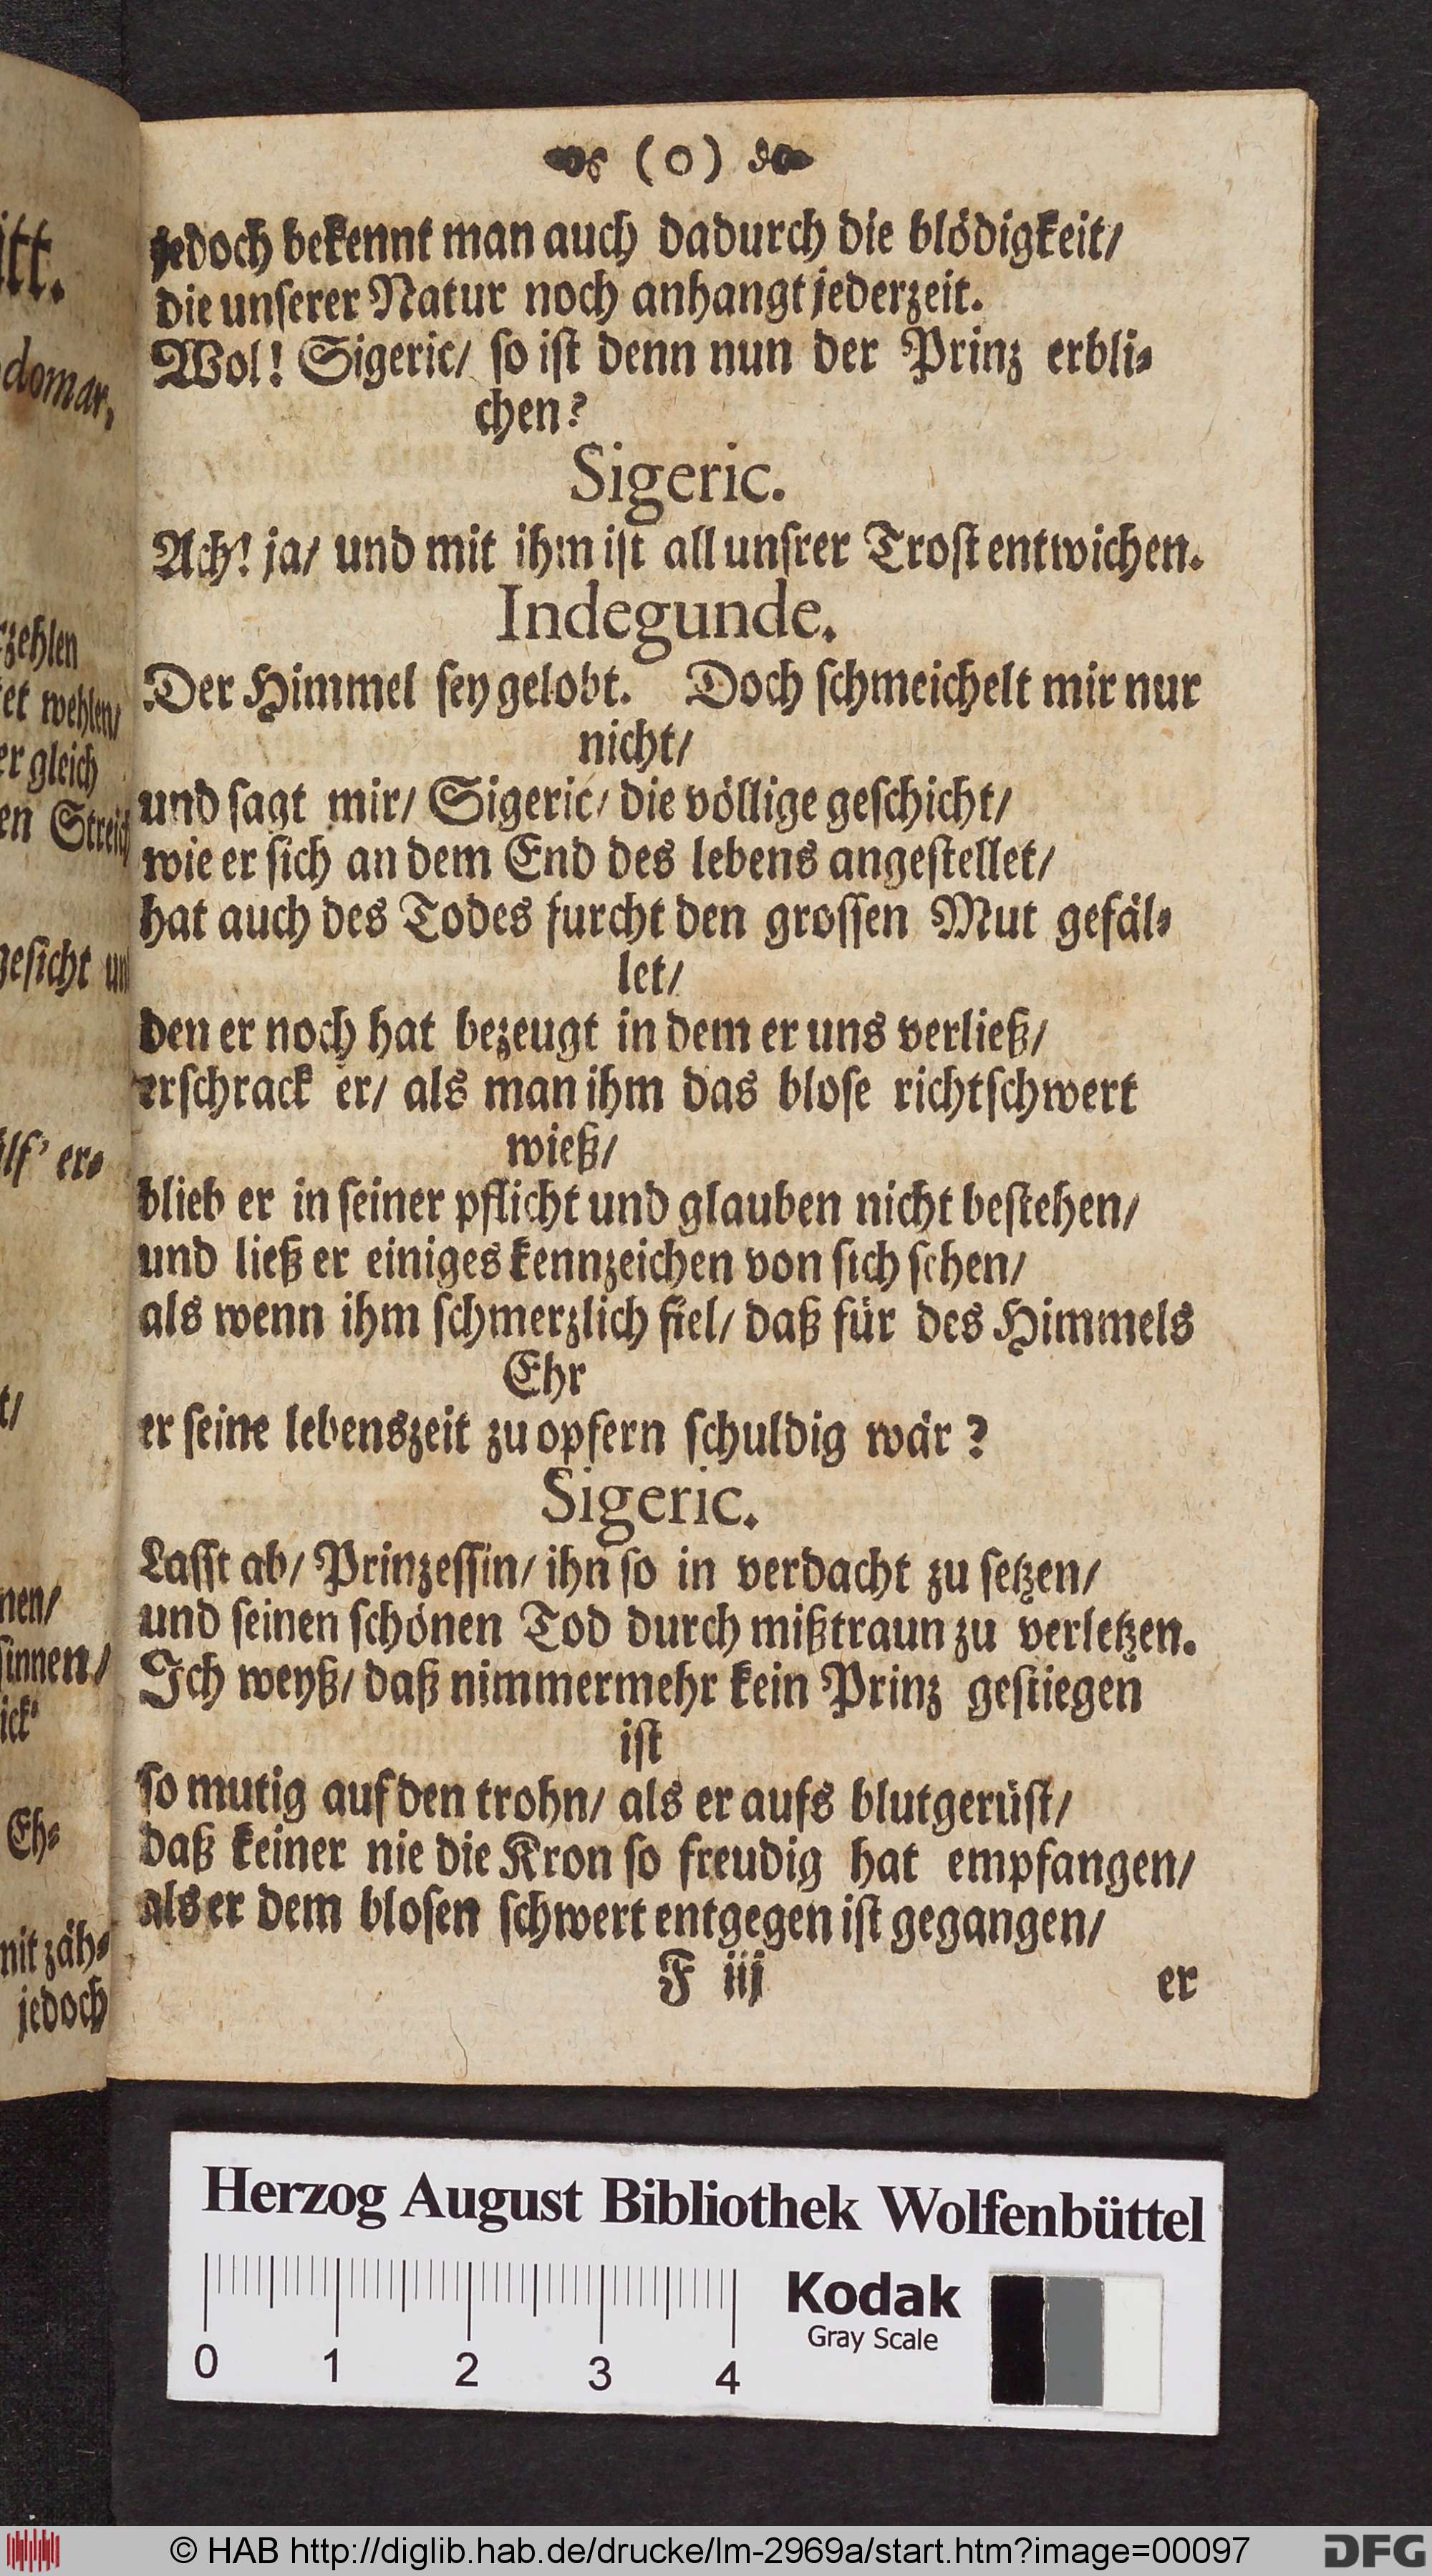 (o)
jedoch bekennt man auch dadurch die blödigkeit/
die unſerer Natur noch anhangt jederzeit.
Wol! Sigeric/ ſo iſt denn nun der Prinz erbli⸗
chen?
Sigeric.
Ach! ja/ und mit ihm iſt all unſrer Troſt entwichen.
Indegunde.
Der Himmel ſey gelobt. Doch ſchmeichelt mir nur
nicht/
und ſagt mir/ Sigeric/ die völlige geſchicht/
wie er ſich an dem End des lebens angeſtellet/
hat auch des Todes furcht den groſſen Mut gefäl⸗
let/
den er noch hat bezeugt in dem er uns verließ/
erſchrack er/ als man ihm das bloſe richtſchwert
wieß/
blieb er in ſeiner pflicht und glauben nicht beſtehen/
und ließ er einiges kennzeichen von ſich ſehen/
als wenn ihm ſchmerzlich fiel/ daß für des Himmels
Ehr
er ſeine lebenszeit zu opfern ſchuldig wär?
Sigeric.
Laſſt ab/ Prinzeſſin/ ihn ſo in verdacht zu ſetzen/
und ſeinen ſchönen Tod durch mißtraun zu verletzen.
Ich weyß/ daß nimmermehr kein Prinz geſtiegen
iſt
ſo mutig auf den trohn/ als er aufs blutgerüſt/
daß keiner nie die Kron ſo freudig hat empfangen/
als er dem bloſen ſchwert entgegen iſt gegangen/
F iij er
domar,
zehlen
wehlen/
gleich
Streich
geſicht
er⸗
ſinnen/
Eh⸗
zäh⸗
jedoch
Herzog August Bibliothek Wolfenbüttel
Kodak
Gray Scale
0 1 2 3 4
© HAB http://diglib.hab.de/drucke/lm-2969a/start.htm?image=00097
DFG